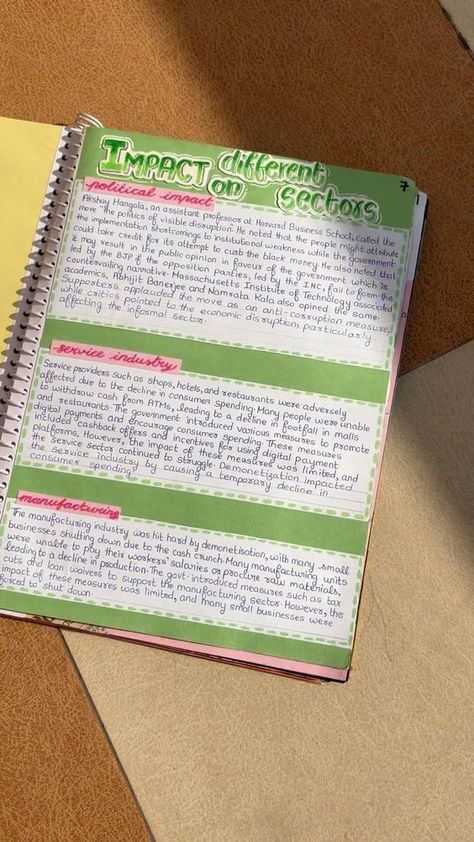 7
IMPACT different
on sectors
political impact
Akshay Mangala, an assistant professor at Harvard Business School, called the
move "the politics of visible disruption". He noted that the people might attribute
the implementation shortcomings to institutional weakness while the government
could take credit for its attempt to curb the black money. He also noted that
it may result in the public opinion in favour of the government which is
led by the BJP if the opposition parties, led by the INC, fail to form the
countervailing narrative. Massachusetts Institute of Technology associated
academics, Abhijit Banerjee and Namrata Kala also opined the same.
Supporters applauded the move as an anti-corruption measure,
while critics pointed to the economic disruption, particularly
affecting the informal sector.
service industry
Service providers such as shops, hotels, and restaurants were adversely
affected due to the decline in consumer spending. Many people were unable
to withdraw cash from ATMs, leading to a decline in footfall in malls
and restaurants. The government introduced various measures to promote
digital payments and encourage consumer spending. These measures
included cashback offers and incentives for using digital payment
platforms. However, the impact of these measures was limited, and
the service sector continued to struggle. Demonetization impacted
the service industry by causing a temporary decline in
consumer spending
manufacturing
The manufacturing industry was hit hard by demonetisation, with many small
businesses shutting down due to the cash crunch. Many manufacturing units
were unable to pay their workers' salaries or procure raw materials,
leading to a decline in production. The govt. introduced measures such as tax
cuts and loan waivers to support the manufacturing sector. However, the
impact of these measures was limited, and many small businesses were
forced to shut down.